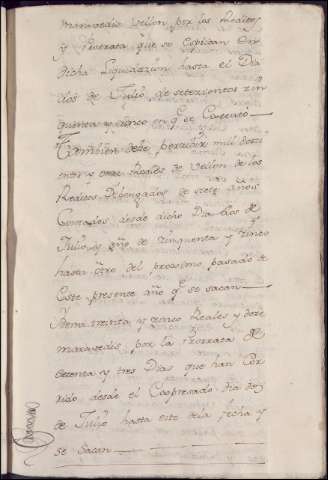 maravedis Vellon por los Reditos
y Prorrata que se Expresan En
dicha Liquidazion hasta el Dia
dos de Julio de setezientos zin
quenta y zinco en qe se Contrato
Tambien debe perzibir mil doci
entos y Reales de Vellon de los
Reditos debengados de siete años
Contados desde dicho Dia dos de
Julio, y año de zinquenta y zinco
hasta otro del proximo pasado de
Este presente año qe se sacan
Ytten treinta y zinco Reales y doze
maravedis por la Prorrata de
setenta y tres Dias que han Cor
rido desde el Coexpresado Dia dos
de Julio hasta este dela fecha y
se Sacan